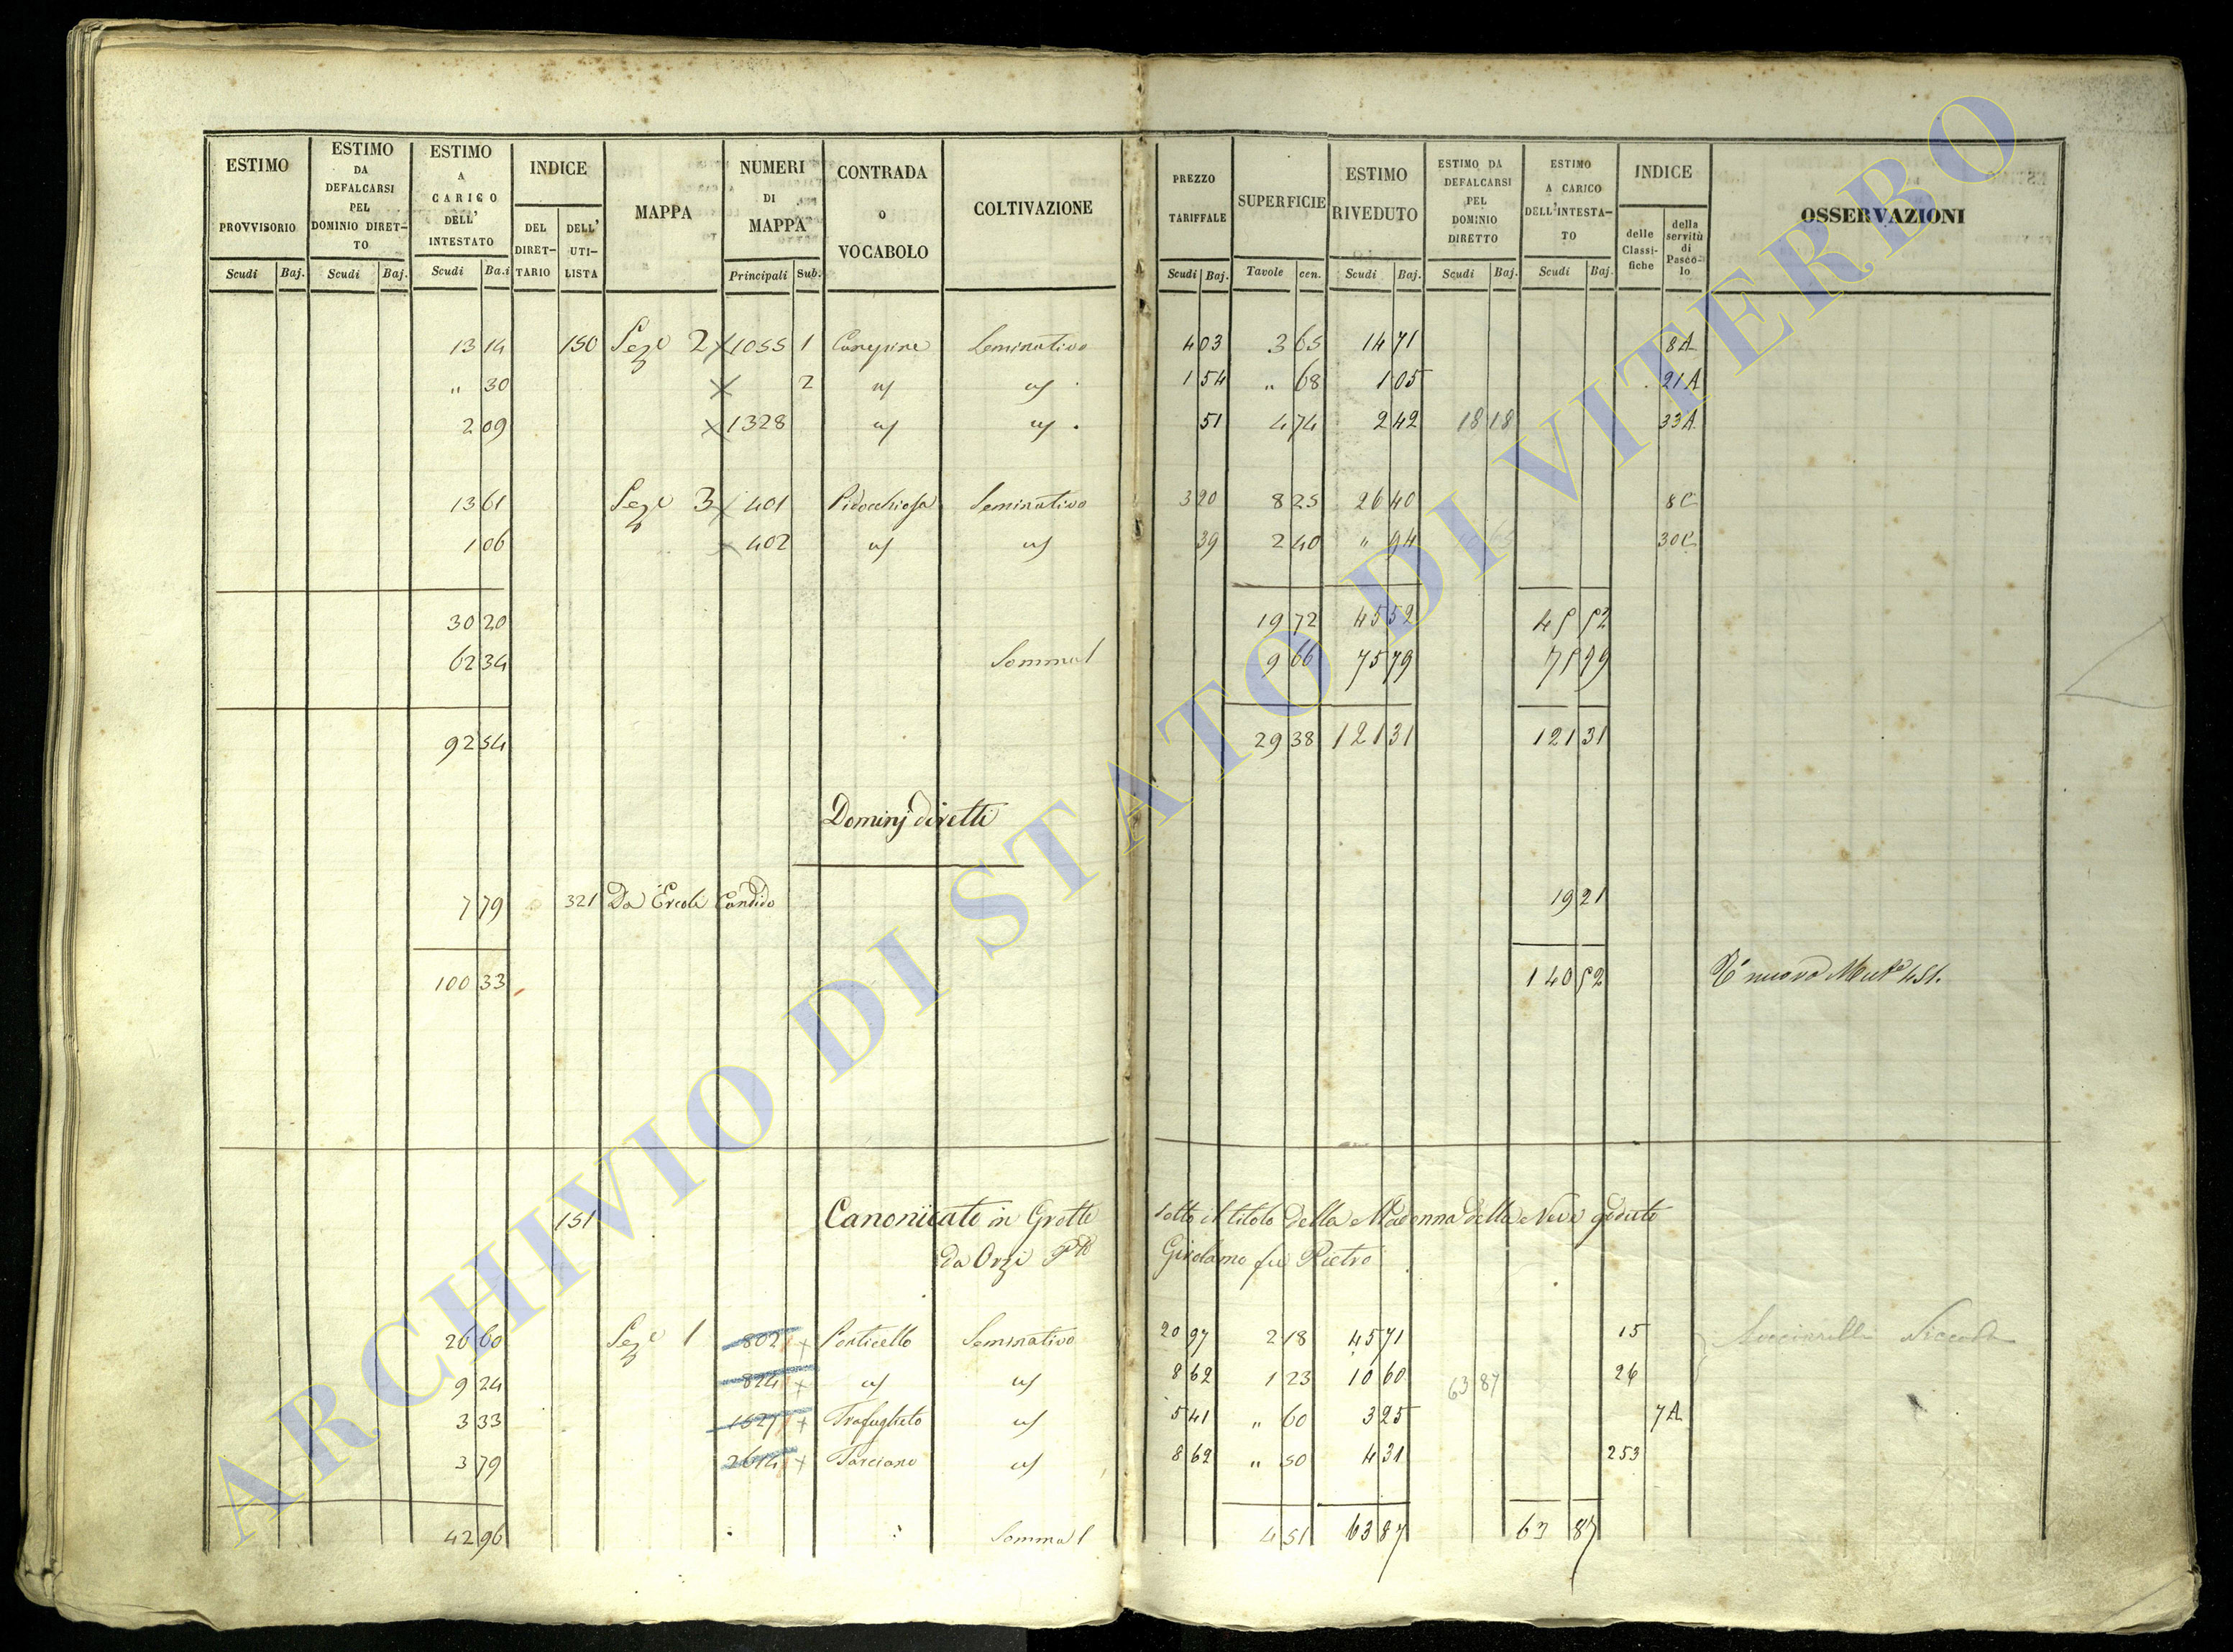 ESTIMO PROVVISORIO Scudi Baj.
ESTIMO DA DEFALCARSI PEL DOMINIO DIRETTO Scudi Baj.
ESTIMO A CARICO DELL' INTESTATO Scudi Ba.i
INDICE DEL DIRETTARIO DELL' UTILISTA
MAPPA
NUMERI DI MAPPA Principali Sub.
CONTRADA o VOCABOLO
COLTIVAZIONE
PREZZO TARIFFALE Scudi Baj.
SUPERFICIE Tavole cen.
ESTIMO RIVEDUTO Scudi Baj.
ESTIMO DA DEFALCARSI PEL DOMINIO DIRETTO Scudi Baj.
ESTIMO A CARICO DELL'INTESTATO Scudi Baj.
INDICE delle Classifiche della servitù di Pascolo
OSSERVAZIONI
13 14 150 Seze 2 1055 1 Canepine Seminativo 4 03 3 65 14 71 8A
" 30 2 " " 1 54 " 68 1 05 21A
2 09 1328 " " 51 4 74 2 42 18 18 33A
13 61 Seze 3 401 Pidocchiosa Seminativo 3 20 8 25 26 40 8C
1 06 402 " " 39 2 40 " 94 30C
30 20 19 72 45 52 45 52
62 34 Somma 1 9 66 75 79 75 79
92 54 29 38 121 31 121 31
Dominj diretti
7 79 321 Da Ercoli Candido 19 21
100 33 140 52 nuovo 451.
151 Canonicato in Grotte sotto il titolo della Madonna della Neve goduto
da Orzi Girolamo fu Pietro
26 60 Seze 1 802 Ponticello Seminativo 20 97 2 18 45 71 15
9 24 824 " " 8 62 1 23 10 60 63 87 26
3 33 1627 Trafugheto " 5 41 " 60 3 25 7A
3 79 2614 Tarciano " 8 62 " 50 4 31 253
42 96 Somma 1 4 51 63 87 63 87
ARCHIVIO DI STATO DI VITERBO